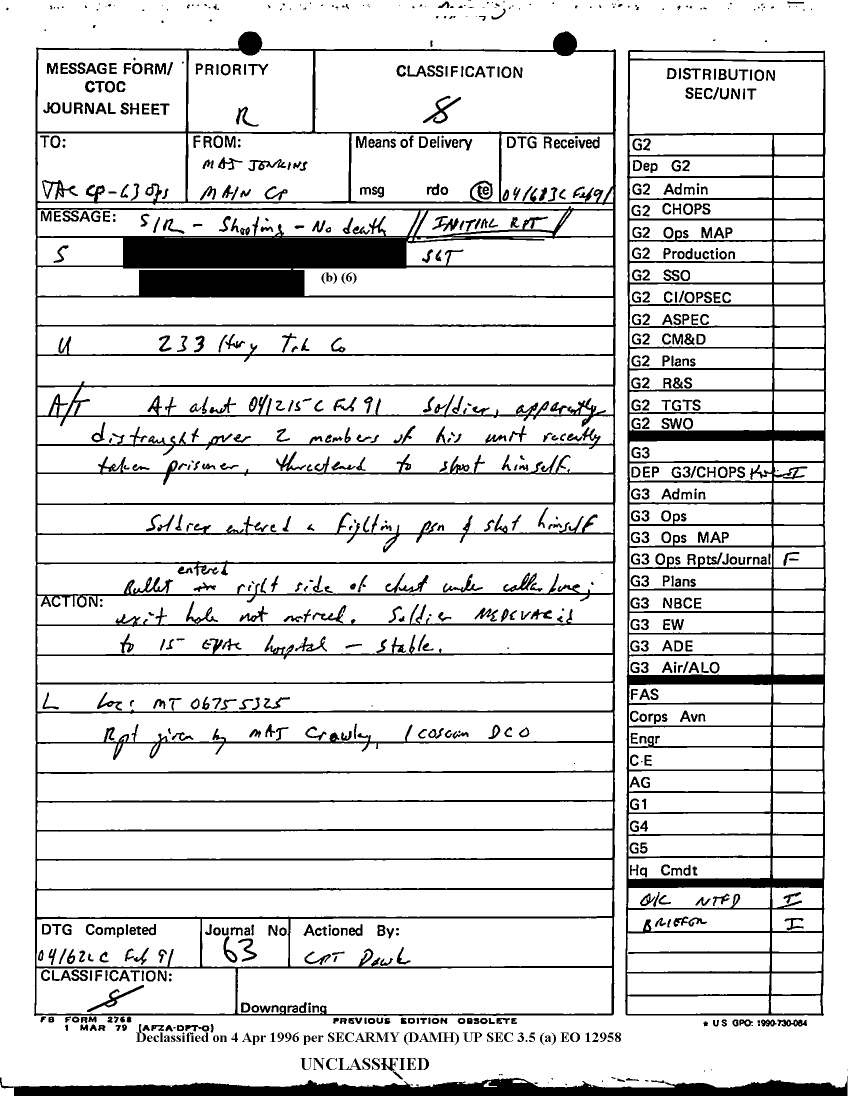 MESSAGE FORM/ CTOC JOURNAL SHEET
PRIORITY
R
CLASSIFICATION
S
DISTRIBUTION SEC/UNIT
TO:
TAC CP-G3 Ops
FROM:
MAJ JENKINS
MAIN CP
Means of Delivery
msg rdo te
DTG Received
04/1613C Feb 91
MESSAGE: S/R - Shooting - No death // INITIAL RPT //
S SGT
(b) (6)
U 233 Hvy Trk Co
A/T At about 04/1215 C Feb 91 Soldier, apparently
distraught over 2 members of his unit recently
taken prisoner, threatened to shoot himself.
Soldier entered a Fighting psn & shot himself
entered
Bullet right side of chest under collar bone;
ACTION: exit hole not noticed. Soldier MEDEVAC'd
to 15 EVAC hospital - stable.
L Loc: MT 0675 5325
Rpt given by MAJ Crowley, 1 COSCOM DCO
DTG Completed
04/1621 C Feb 91
Journal No
63
Actioned By:
CPT Dawk
CLASSIFICATION:
S
Downgrading
G2
Dep G2
G2 Admin
G2 CHOPS
G2 Ops MAP
G2 Production
G2 SSO
G2 CI/OPSEC
G2 ASPEC
G2 CM&D
G2 Plans
G2 R&S
G2 TGTS
G2 SWO
G3
DEP G3/CHOPS I
G3 Admin
G3 Ops
G3 Ops MAP
G3 Ops Rpts/Journal F
G3 Plans
G3 NBCE
G3 EW
G3 ADE
G3 Air/ALO
FAS
Corps Avn
Engr
C-E
AG
G1
G4
G5
Hq Cmdt
O/C NTFD I
BRIEFER I
FB FORM 2768
1 MAR 79 (AFZA-DPT-O)
PREVIOUS EDITION OBSOLETE
★ U S GPO: 1990-730-084
Declassified on 4 Apr 1996 per SECARMY (DAMH) UP SEC 3.5 (a) EO 12958
UNCLASSIFIED